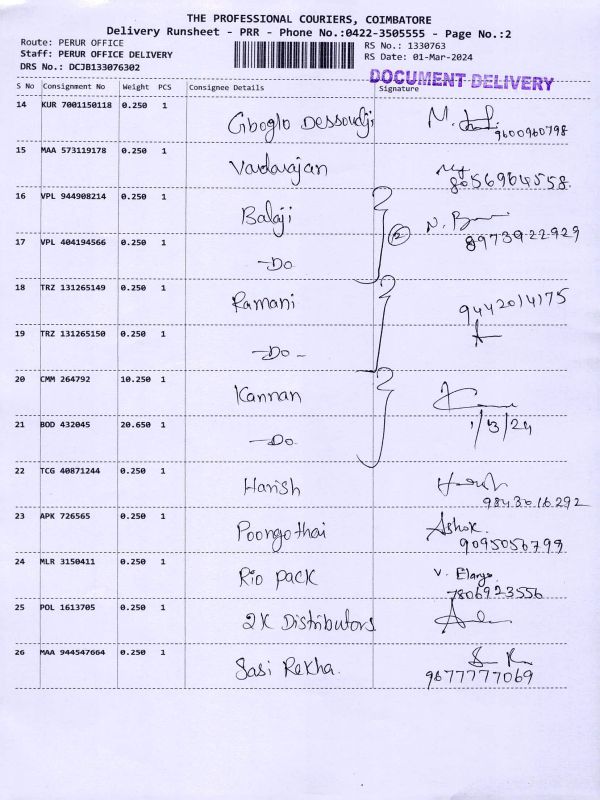 THE PROFESSIONAL COURIERS, COIMBATORE
Delivery Runsheet - PRR - Phone No.:0422-3505555 - Page No.:2
Route: PERUR OFFICE
RS No.: 1330763
Staff: PERUR OFFICE DELIVERY
RS Date: 01-Mar-2024
DRS No.: DCJB133076302
DOCUMENT DELIVERY
S No Consignment No Weight PCS Consignee Details Signature
14 KUR 7001150118 0.250 1
M.
9600960798
15 MAA 573119178 0.250 1
Vardarajan
8056964558
16 VPL 944908214 0.250 1
Balaji
N.
2
8973922929
17 VPL 404194566 0.250 1
-Do
18 TRZ 131265149 0.250 1
Ramani
9442014175
19 TRZ 131265150 0.250 1
-Do-
20 CMM 264792 10.250 1
Kannan
1/3/24
21 BOD 432045 20.650 1
-Do
22 TCG 40871244 0.250 1
Harish
9843016292
23 APK 726565 0.250 1
Poongothai Ashok.
9095056799
24 MLR 3150411 0.250 1
Rio pack V.
7806923556
25 POL 1613705 0.250 1
2K Distributors
26 MAA 944547664 0.250 1
Sasi Rekha.
9677777069